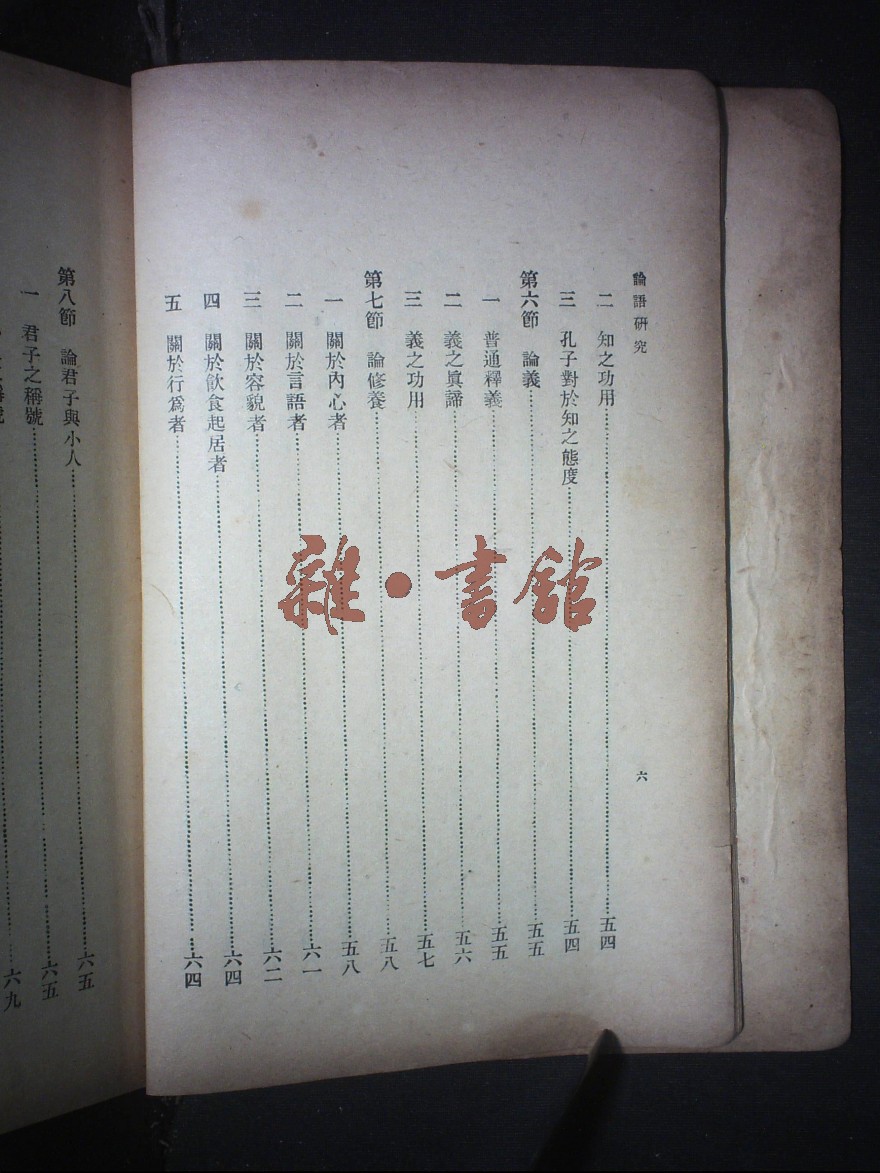 論語研究
六
二 知之功用……五四
三 孔子對於知之態度……五四
第六節 論義……五五
一 普通釋義……五五
二 義之眞諦……五六
三 義之功用……五七
第七節 論修養……五八
一 關於內心者……五八
二 關於言語者……六一
三 關於容貌者……六二
四 關於飲食起居者……六四
五 關於行爲者……六四
第八節 論君子與小人……六五
一 君子之稱號……六五
六九
雜·書館